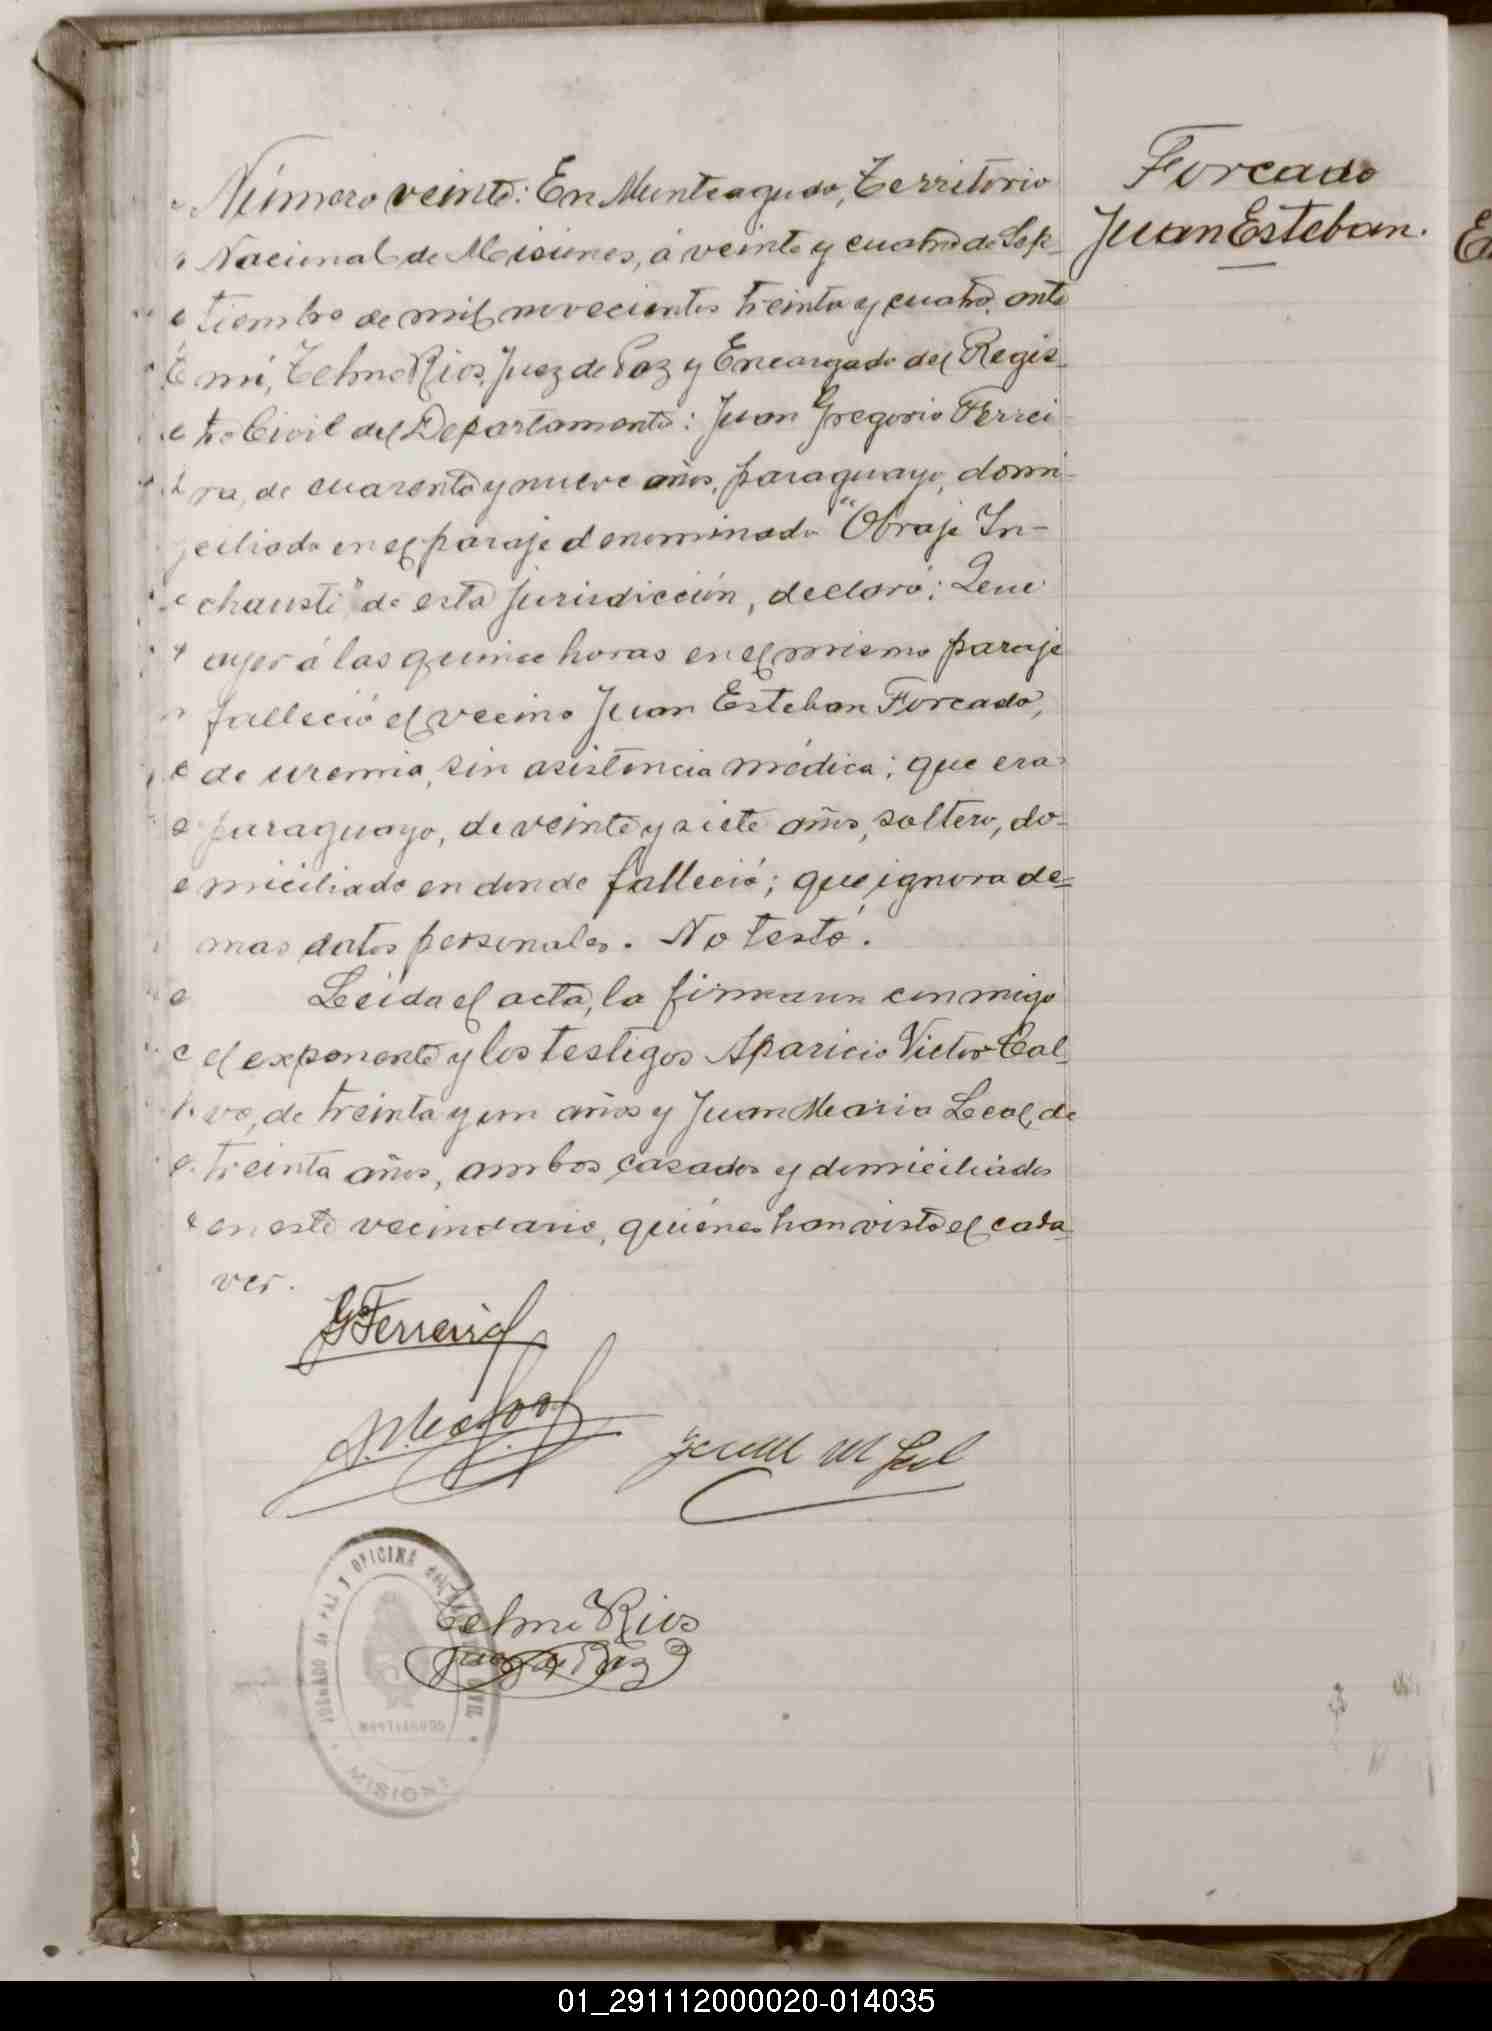 Forcado
Juan Esteban.
Número veinte: En Monteagudo, Territorio
Nacional de Misiones, á veinte y cuatro de Sep-
tiembre de mil novecientos treinta y cuatro, ante
mi, Telmo Rios, Juez de Paz y Encargado del Regis-
tro Civil del Departamento: Juan Gregorio Ferrei-
ra, de cuarenta y nueve años, paraguayo, domi-
ciliado en el paraje denominado "Obraje In-
chausti" de esta jurisdicción, declaró: Que
ayer á las quince horas en el mismo paraje
falleció el vecino Juan Esteban Forcado,
de uremia, sin asistencia médica; que era
paraguayo, de veinte y siete años, soltero, do-
miciliado en donde falleció; que ignora de-
mas datos personales. No testó.
Leida el acta, la firmaron conmigo
el exponente y los testigos Aparicio Victor Cal-
vo, de treinta y un años y Juan Maria Leal, de
treinta años, ambos casados y domiciliados
en este vecindario, quiénes han visto el cada-
ver.
G Ferreira
Juan M Leal
Telmo Rios
Juez de Paz
JUZGADO de PAZ Y OFICINA del REGISTRO CIVIL
MONTEAGUDO
MISIONES
01_291112000020-014035